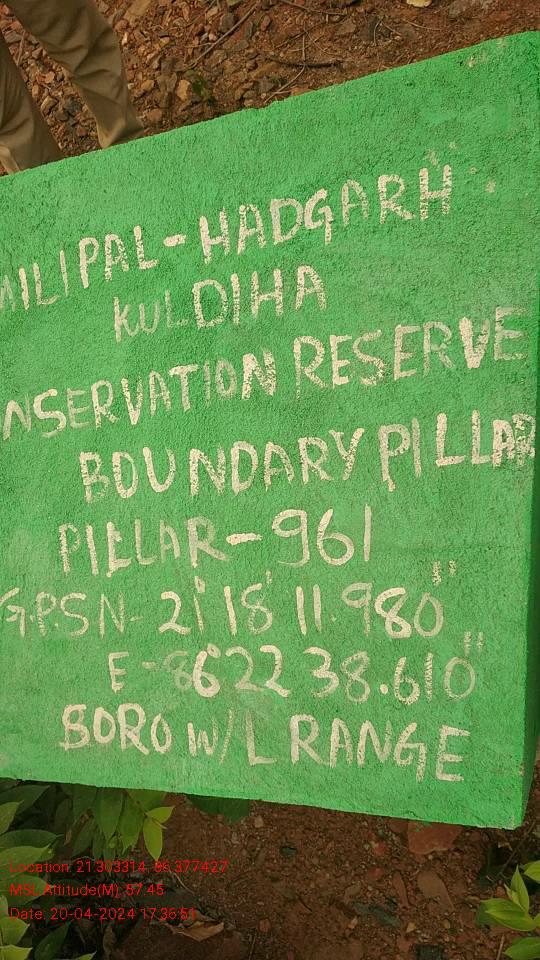 MILIPAL-HADGARH
KULDIHA
NSERVATION RESERVE
BOUNDARY PILLAR
PILLAR-961
G.P.S N- 21° 18' 11.980"
E-86° 22 38.610"
BORO W/L RANGE
Location: 21.303314, 86.377427
MSL Altitude(M): 57.45
Date: 20-04-2024 17:36:51